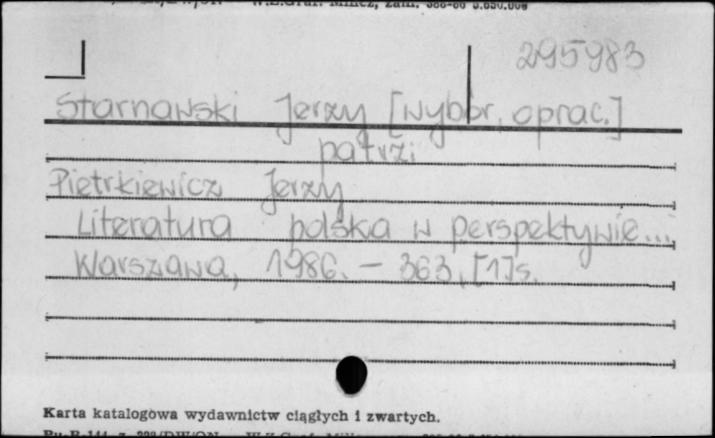 295983
Starnawski Jerzy [wybór, oprac.]
patrzi
Pietrkiewicz Jerzy
Literatura polska w perspektywie...
Warszawa, 1986. – 363, [1] s.
Karta katalogowa wydawnictw ciągłych i zwartych.